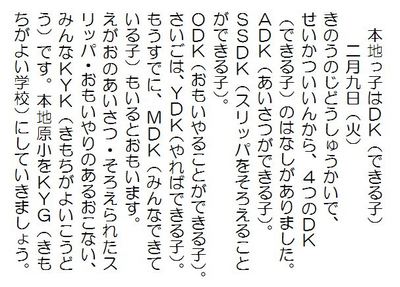 本地っ子はDK(できる子)
二月九日(火)
きのうのじどうしゅうかいで、
せいかついいんから、4つのDK
(できる子)のはなしがありました。
ADK(あいさつができる子)。
SSDK(スリッパをそろえること
ができる子)。
ODK(おもいやることができる子)。
さいごは、YDK(やればできる子)。
もうすでに、MDK(みんなできて
いる子)もいるとおもいます。
えがおのあいさつ・そろえられたス
リッパ・おもいやりのあるおこない、
みんなKYK(きもちがよいこうど
う)です。本地原小をKYG(きも
ちがよい学校)にしていきましょう。